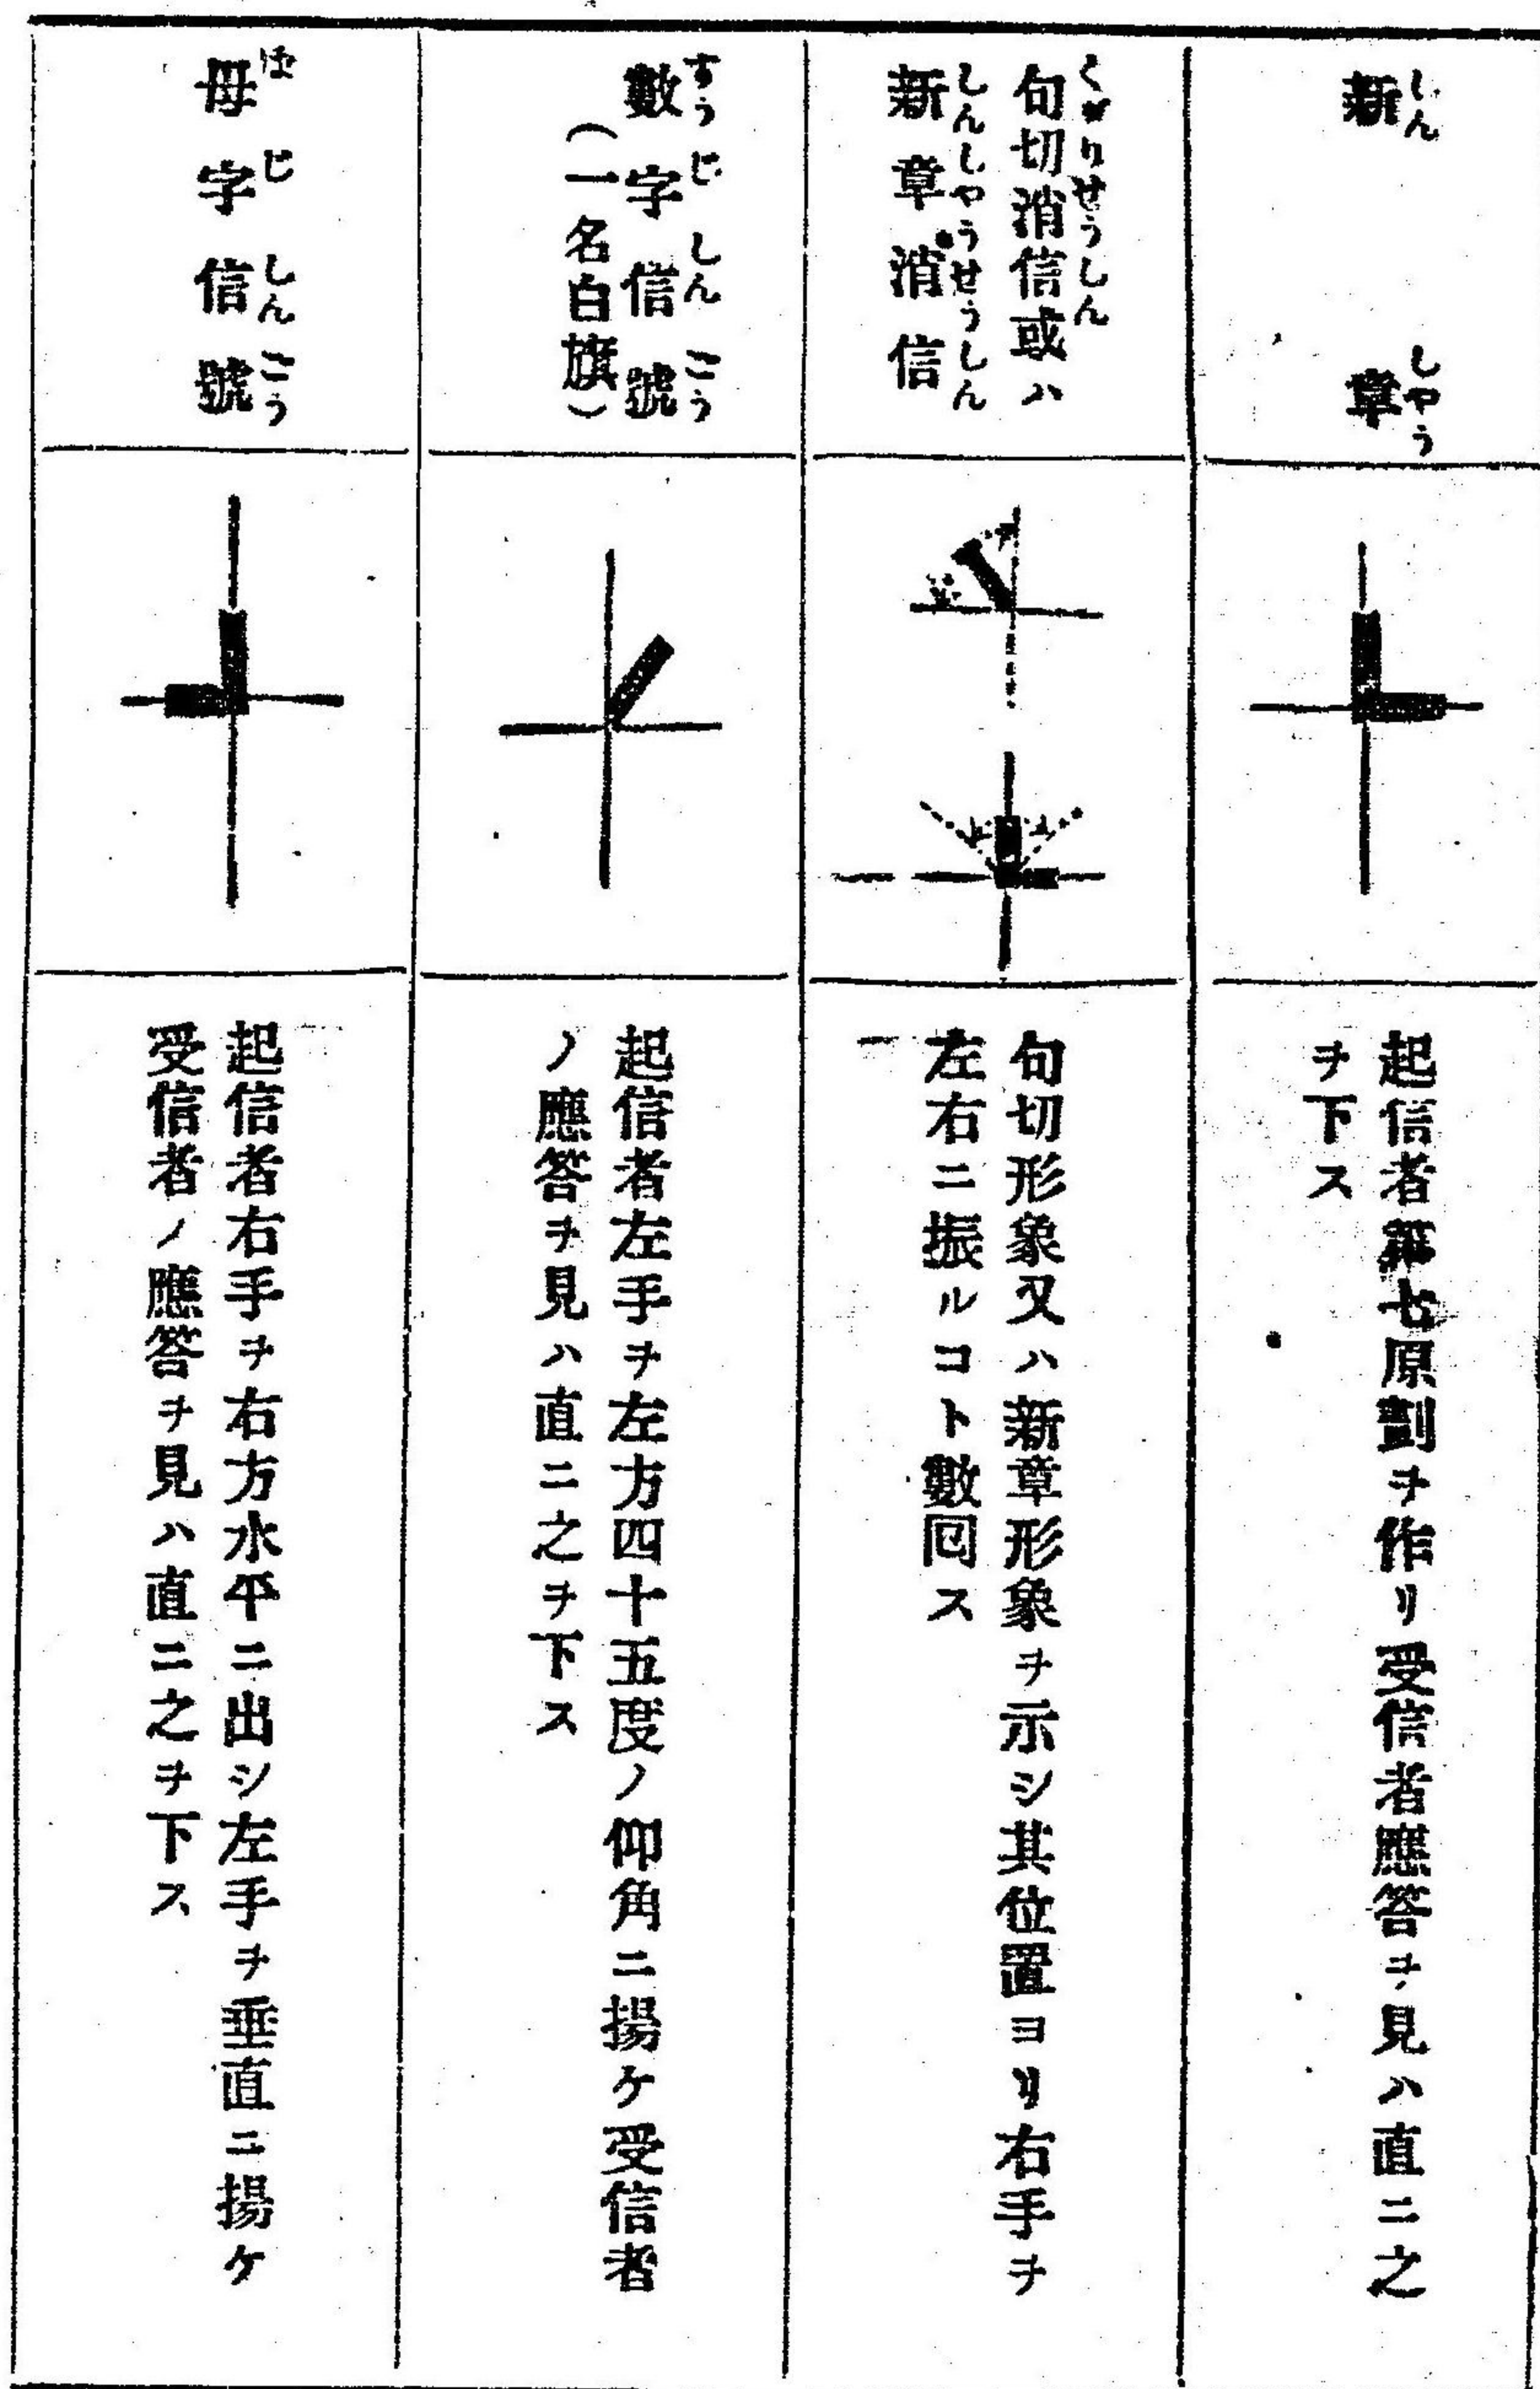 新章
しんしやう
起信者第七原劃ヲ作リ受信者應答ヲ見ハ直ニ之
ヲ下ス
句切消信或ハ
くぎりせうしん
新章消信
しんしやうせうしん
句切形象又ハ新章形象ヲ示シ其位置ヨリ右手ヲ
左右ニ振ルコト數回ス
數字信號
すうじしんごう
(一名白旗)
起信者左手ヲ左方四十五度ノ仰角ニ揚ケ受信者
ノ應答ヲ見ハ直ニ之ヲ下ス
母字信號
ほじしんごう
起信者右手ヲ右方水平ニ出シ左手ヲ垂直ニ揚ケ
受信者ノ應答ヲ見ハ直ニ之ヲ下ス